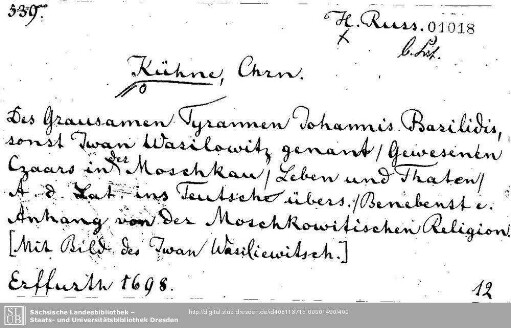 539.
H. Russ. 01018
x
b. Lit.
Kühne, Chrn.
Des Grausamen Tyrannen Johannis Basilidis,
sonst Iwan Wasilowitz genant / Gewesenen
Czaars in der Moschkau / Leben und Thaten /
A. d. Lat. ins Teutsche übers. / Benebenst e.
Anhang von der Moschkowitischen Religion.
[Mit Bild des Iwan Wasiliewitsch.]
Erffurth 1698.
12
SLUB
Sächsische Landesbibliothek –
Staats- und Universitätsbibliothek Dresden